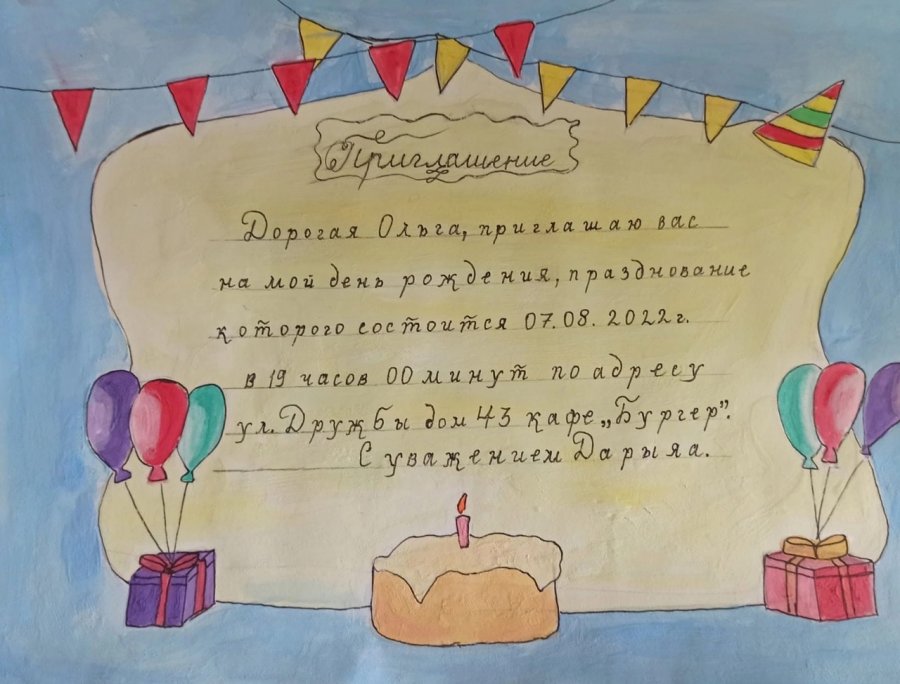 Приглашение
Дорогая Ольга, приглашаю вас
на мой день рождения, празднование
которого состоится 07.08.2022г.
в 19 часов 00 минут по адресу
ул. Дружбы дом 43 кафе „Бургер”.
С уважением Дарыяа.